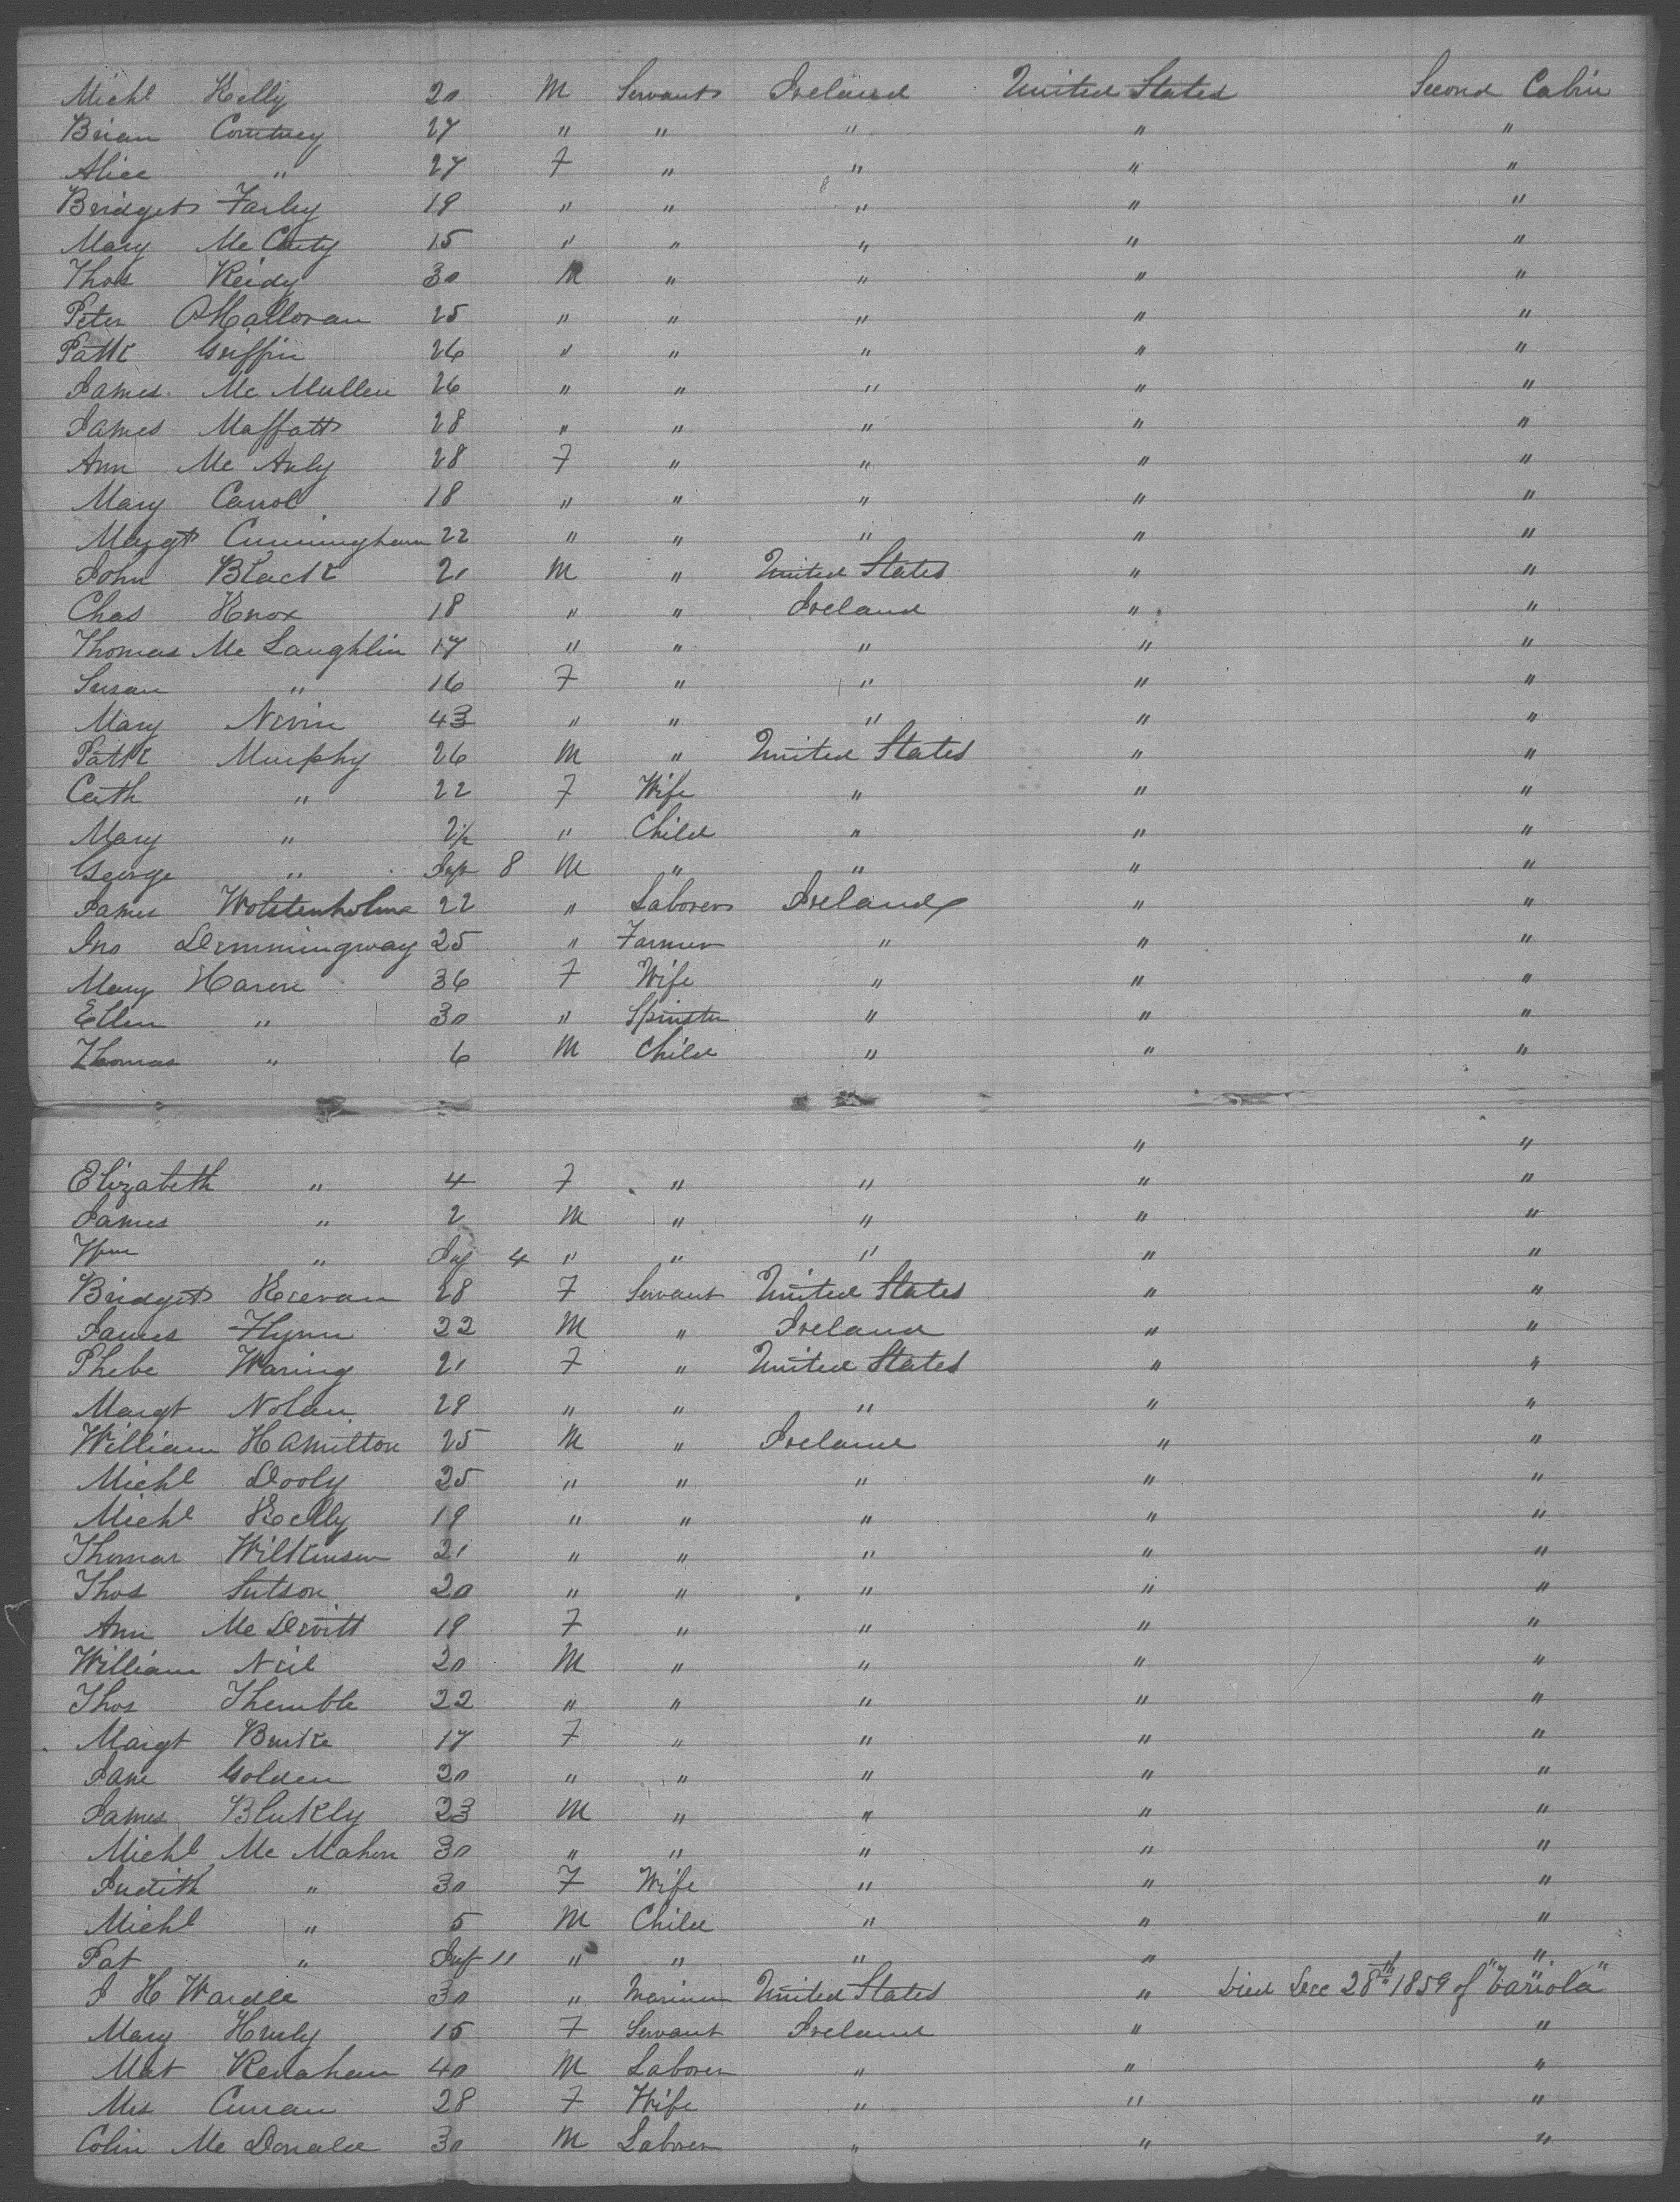 Michl Kelly 20 M Servant Ireland United States Second Cabin
Brian Courtney 27 " " " " "
Alice " 27 F " " " "
Bridget Farley 19 " " " " "
Mary McCarty 15 " " " " "
Thos Reidy 30 M " " " "
Peter OHalloran 25 " " " " "
Patk Griffin 26 " " " " "
James McMullen 26 " " " " "
James Moffatt 28 " " " " "
Ann McAuly 28 F " " " "
Mary Carrol 18 " " " " "
Margt Cunningham 22 " " " " "
John Black 21 M " United States " "
Chas Knox 18 " " Ireland " "
Thomas McLaughlin 17 " " " " "
Susan " 16 F " " " "
Mary Nevin 43 " " " " "
Patk Murphy 26 M " United States " "
Cath " 22 F Wife " " "
Mary " 2½ " Child " " "
George " Inft 8 M " " " "
James Wolstenholme 22 " Laborer Ireland " "
Jno Demmingway 25 " Farmer " " "
Mary Haren 36 F Wife " " "
Ellen " 30 " Spinster " " "
Thomas " 6 M Child " " "
" "
Elizabeth " 4 F " " " "
James " 2 M " " " "
Wm " Inf 4 " " " " "
Bridget Kieevan 28 F Servant United States " "
James Flynn 22 M " Ireland " "
Phebe Waring 21 F " United States " "
Margt Nolan 29 " " " " "
William Hamilton 25 M " Ireland " "
Michl Dooly 25 " " " " "
Michl Kelly 19 " " " " "
Thomas Wilkinson 21 " " " " "
Thos Sutson 20 " " " " "
Ann McDevitt 19 F " " " "
William Neil 20 M " " " "
Thos Themble 22 " " " " "
Margt Burke 17 F " " " "
Jane Golden 20 " " " " "
James Blukly 23 M " " " "
Michl McMahon 30 " " " " "
Judith " 30 F Wife " " "
Michl " 5 M Child " " "
Pat " Inft 11 " " " " "
J H Wardle 30 " Mariner United States " Died Dec 28th 1859 of "Variola" "
Mary Hruly 15 F Servant Ireland " "
Mat Renahan 40 M Laborer " " "
Mrs Curran 28 F Wife " " "
Colin McDonald 30 M Laborer " " "